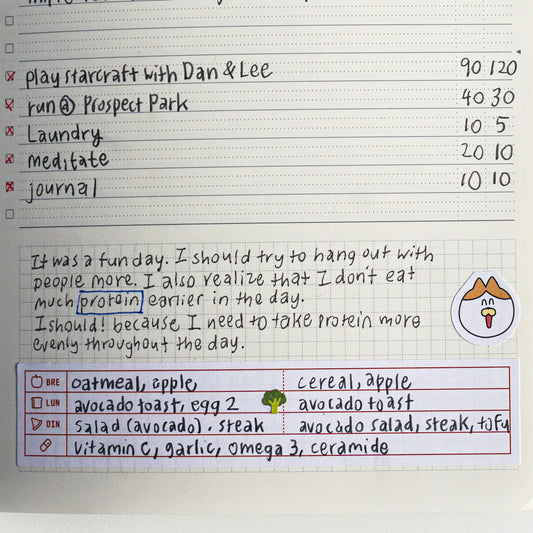 play starcraft with Dan & Lee 90 120
run @ Prospect Park 40 30
Laundry 10 5
meditate 20 10
journal 10 10
It was a fun day. I should try to hang out with
people more. I also realize that I don't eat
much protein earlier in the day.
I should! because I need to take protein more
evenly throughout the day.
BRE oatmeal, apple cereal, apple
LUN avocado toast, egg 2 avocado toast
DIN salad (avocado), steak avocado salad, steak, tofu
vitamin C, garlic, omega 3, ceramide